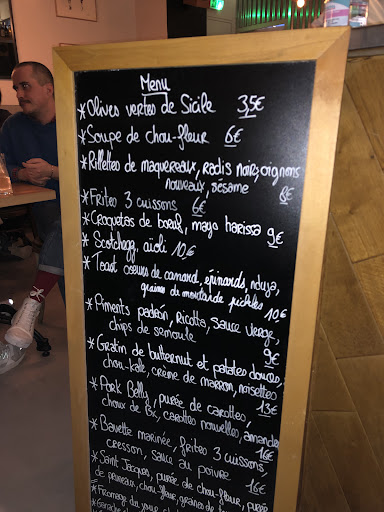 Menu
*Olives vertes de Sicile 3,5€
*Soupe de chou-fleur 6€
*Rillettes de maquereaux, radis noir, oignons
nouveaux, sésame 8€
*Frites 3 cuissons 6€
*Croquetas de bœuf, mayo harissa 9€
*Scotchegg, aïoli 10€
*Toast cœurs de canard, épinards, nduja,
graines de moutarde pickles 10€
*Piments padrón, ricotta, sauce vierge,
chips de semoule 9€
*Gratin de butternut et patates douces,
chou-kale, crème de marron, noisettes
13€
*Pork Belly, purée de carottes,
choux de Bx, carottes nouvelles, amandes
16€
*Bavette marinée, frites 3 cuissons
cresson, sauce au poivre 16€
*Saint Jacques, purée de chou-fleur, purée
de pruneaux, chou-fleur, graines de
*Fromage du jour